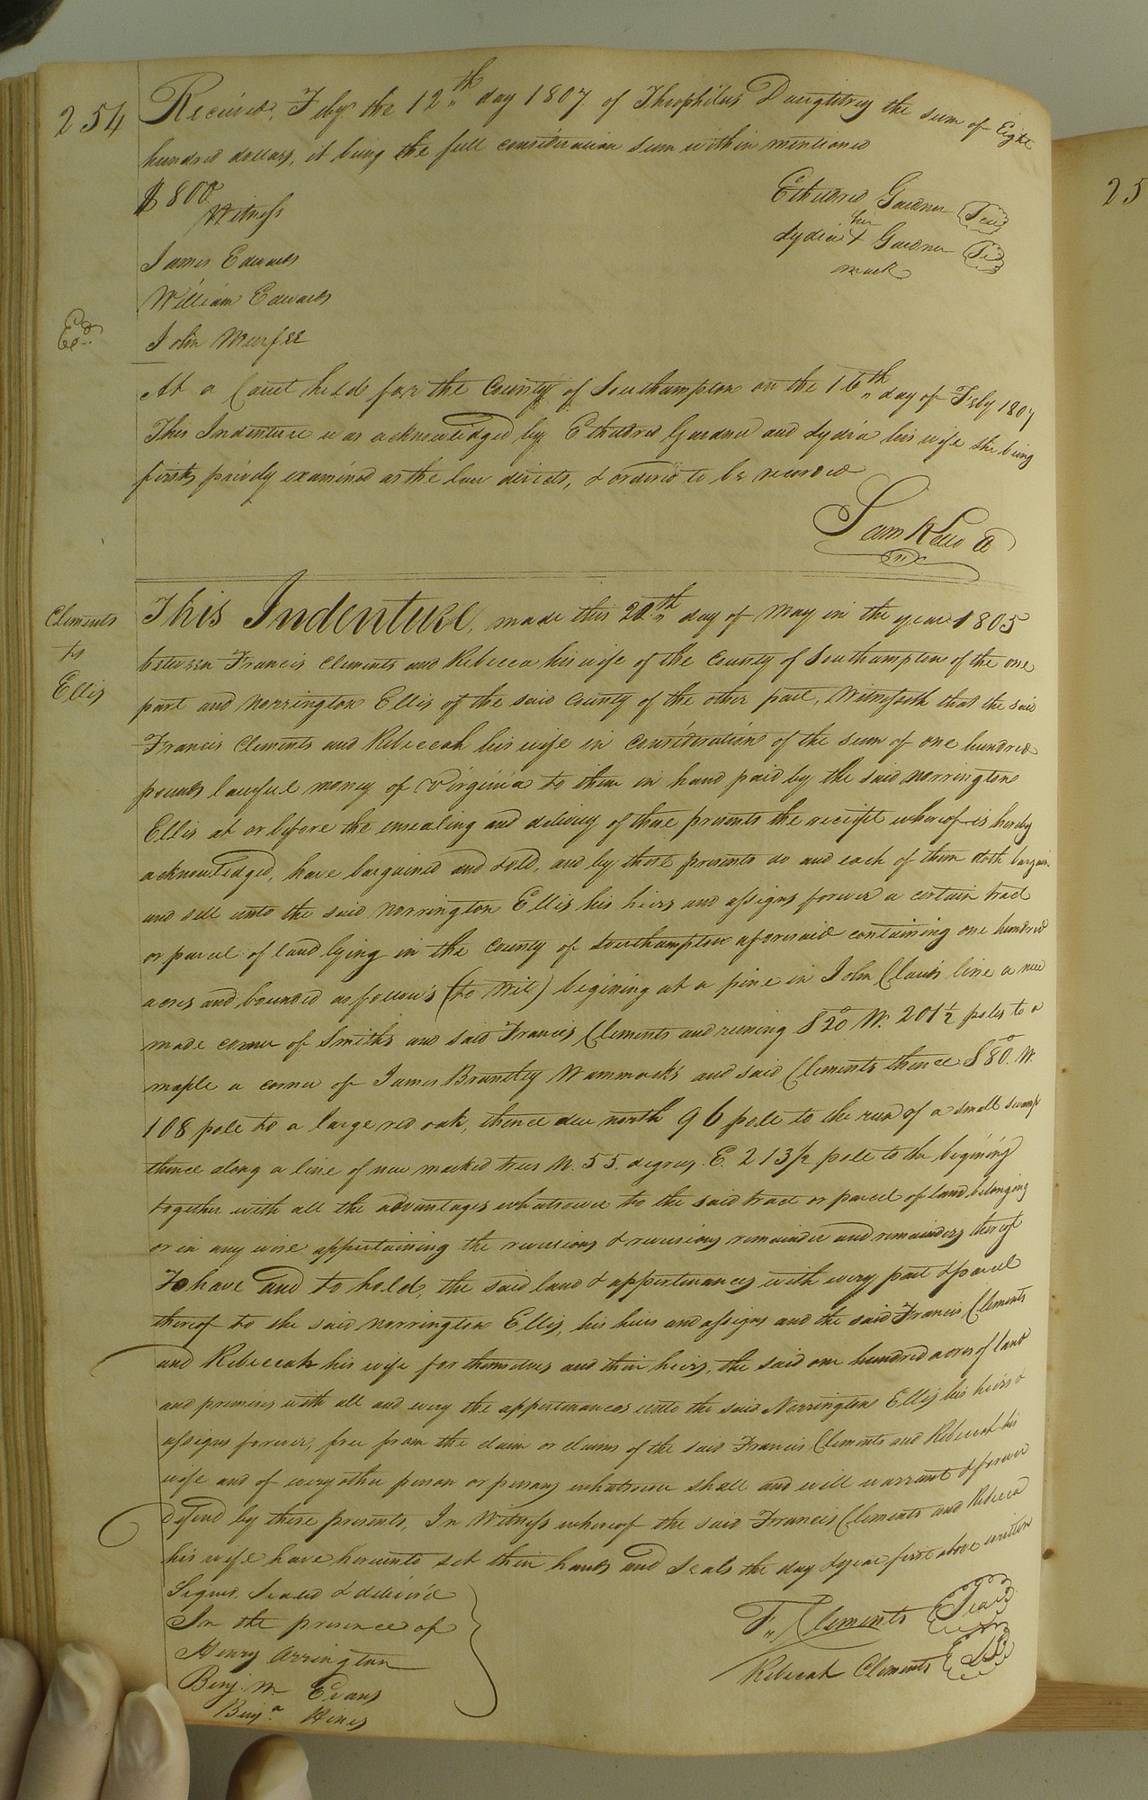 254
Received, Feby the 12th day 1807 of Theophilus Daughtrey the sum of Eight
hundred dollars, it being the full consideration sum within mentioned
$800
Witness
Etheldred Gardner Seal
James Edwards
her
Lydia X Gardner Seal
mark
William Edwards
John Murfee
At a Court held for the County of Southampton on the 16th day of Feby 1807
This Indenture was acknowledged by Etheldred Gardner and Lydia his wife she being
firstly privily examined as the law directs, & ordered to be recorded
Clements
to
Ellis
This Indenture, made this 20th day of May in the year 1805
between Francis Clements and Rebecca his wife of the County of Southampton of the one
part and Norrington Ellis of the said County of the other part, Witnesseth that the said
Francis Clements and Rebeccah his wife in consideration of the sum of one hundred
pounds lawful money of Virginia to them in hand paid by the said Norrington
Ellis at or before the ensealing and delivery of these presents the receipt whereof is hereby
acknowledged, have bargained and sold, and by these presents do and each of them doth bargain
and sell unto the said Norrington Ellis his heirs and assigns forever a certain tract
or parcel of land lying in the County of Southampton aforesaid containing one hundred
acres and bounded as follows (to Wit) begining at a pine in John Claud's line a new
made corner of Smith's and said Francis Clements and runing S 20° W. 201½ poles to a
maple a corner of James Brantley Wammack's and said Clements thence S 80°. W.
108 pole to a large red oak, thence due north 96 pole to the run of a small swamp
thence along a line of new marked trees N. 55. degrees. E. 213½ pole to the begining
together with all the advantages whatsoever to the said tract or parcel of land belonging
or in any wise appertaining the revisions & revisions remainder and remainders thereof
To have and to hold, the said land & appertenances with every part & parcel
thereof to the said Norrington Ellis, his heirs and assigns and the said Francis Clements
and Rebeccah his wife for themselves and their heirs, the said one hundred acres of land
and premises with all and every the appertenances unto the said Norrington Ellis his heirs &
assigns forever, free from the claim or claims of the said Francis Clements and Rebecah his
wife and of every other person or persons whatsoever shall and will warrant & forever
defend by these presents, In Witness whereof the said Francis Clements and Rebecca
his wife have hereunto set their hands and seals the day & year first above written
Signed. Sealed & deliver'd
In the presence of
Henry Arrington
Benj. W. Evans
Benja. Hines
F. Clements Seal
Rebecah Clements
25